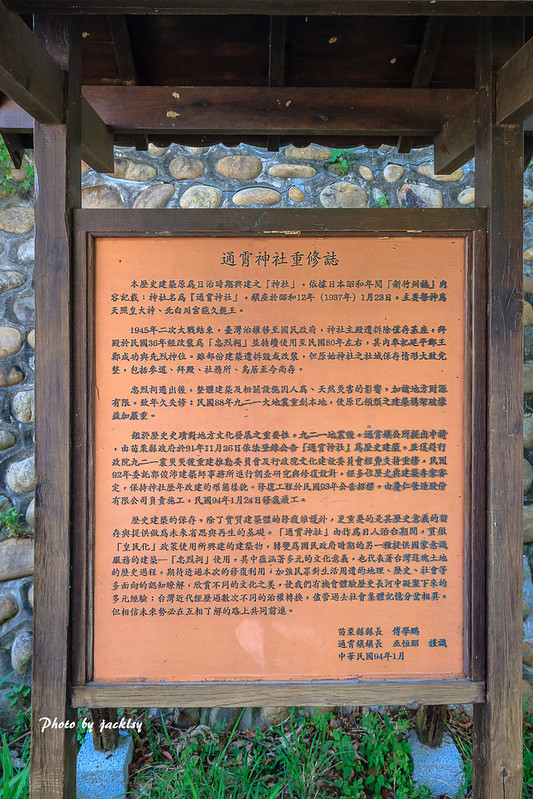 通霄神社重修誌
本歷史建築原為日治時期興建之「神社」，依據日本昭和年間「新竹州誌」內
容記載：神社名為『通霄神社』，鎮座於昭和12年（1937年）1月23日。主要祭神為
天照皇大神、北白川宮能久親王。
1945年二次大戰結束，臺灣治權移至國民政府，神社主殿遭拆除僅存基座，拜
殿於民國36年候改裝為「忠烈祠」並持續使用至民國80年左右，其內奉祀延平郡王
鄭成功與先烈神位。雖部份建築遭拆毀或改裝，但原始神社之社域保存情形大致完
整，包括參道、拜殿、社務所、鳥居至今尚存。
忠烈祠遷出後，整體建築及相關設施因人為、天然災害的影響，加諸地方財源
有限，致年久失修；民國88年九二一大地震重創本地，使原已傾頹之建築構架破壞
益加嚴重。
鑑於歷史史蹟對地方文化發展之重要性。九二一地震後，通霄鎮公所提出申請
，由苗栗縣政府於91年11月26日依法登錄公告『通霄神社』為歷史建築。並獲得行
政院九二一震災災後重建推動委員會及行政院文化建設委員會經費支持重修，民國
92年委託郭俊沛建築師事務所進行調查研究與修復設計，經多位歷史與建築專家鑒
定，保持神社歷年改建的形態樣貌。修復工程於民國93年公告招標，由慶仁營造股份
有限公司負責施工，民國94年1月24日修復竣工。
歷史建築的保存，除了實質建築體的修復維護外，更重要的是其歷史意義的留
存與提供做為未來省思與再生的基礎。「通霄神社」由作為日人治台期間，貫徹
「皇民化」政策使用所興建的建築物，轉變為國民政府時期的另一種提供國家意識
服務的建築—「忠烈祠」使用，其中蘊涵著多元的文化意義，也代表著台灣這塊土地
的歷史過程，期待透過本次的修復利用，加強民眾對生活周遭的地理、歷史、社會等
多面向的認知瞭解，欣賞不同的文化之美，使我們有機會體驗歷史長河中凝聚下來的
多元經驗；台灣近代經歷過數次不同的治權轉換，儘管過去社會集體記憶分岔相異，
但相信未來勢必在互相了解的路上共同前進。
苗栗縣縣長 傅學鵬
通霄鎮鎮長 巫恒昭 謹識
中華民國94年1月
Photo by jacklsy